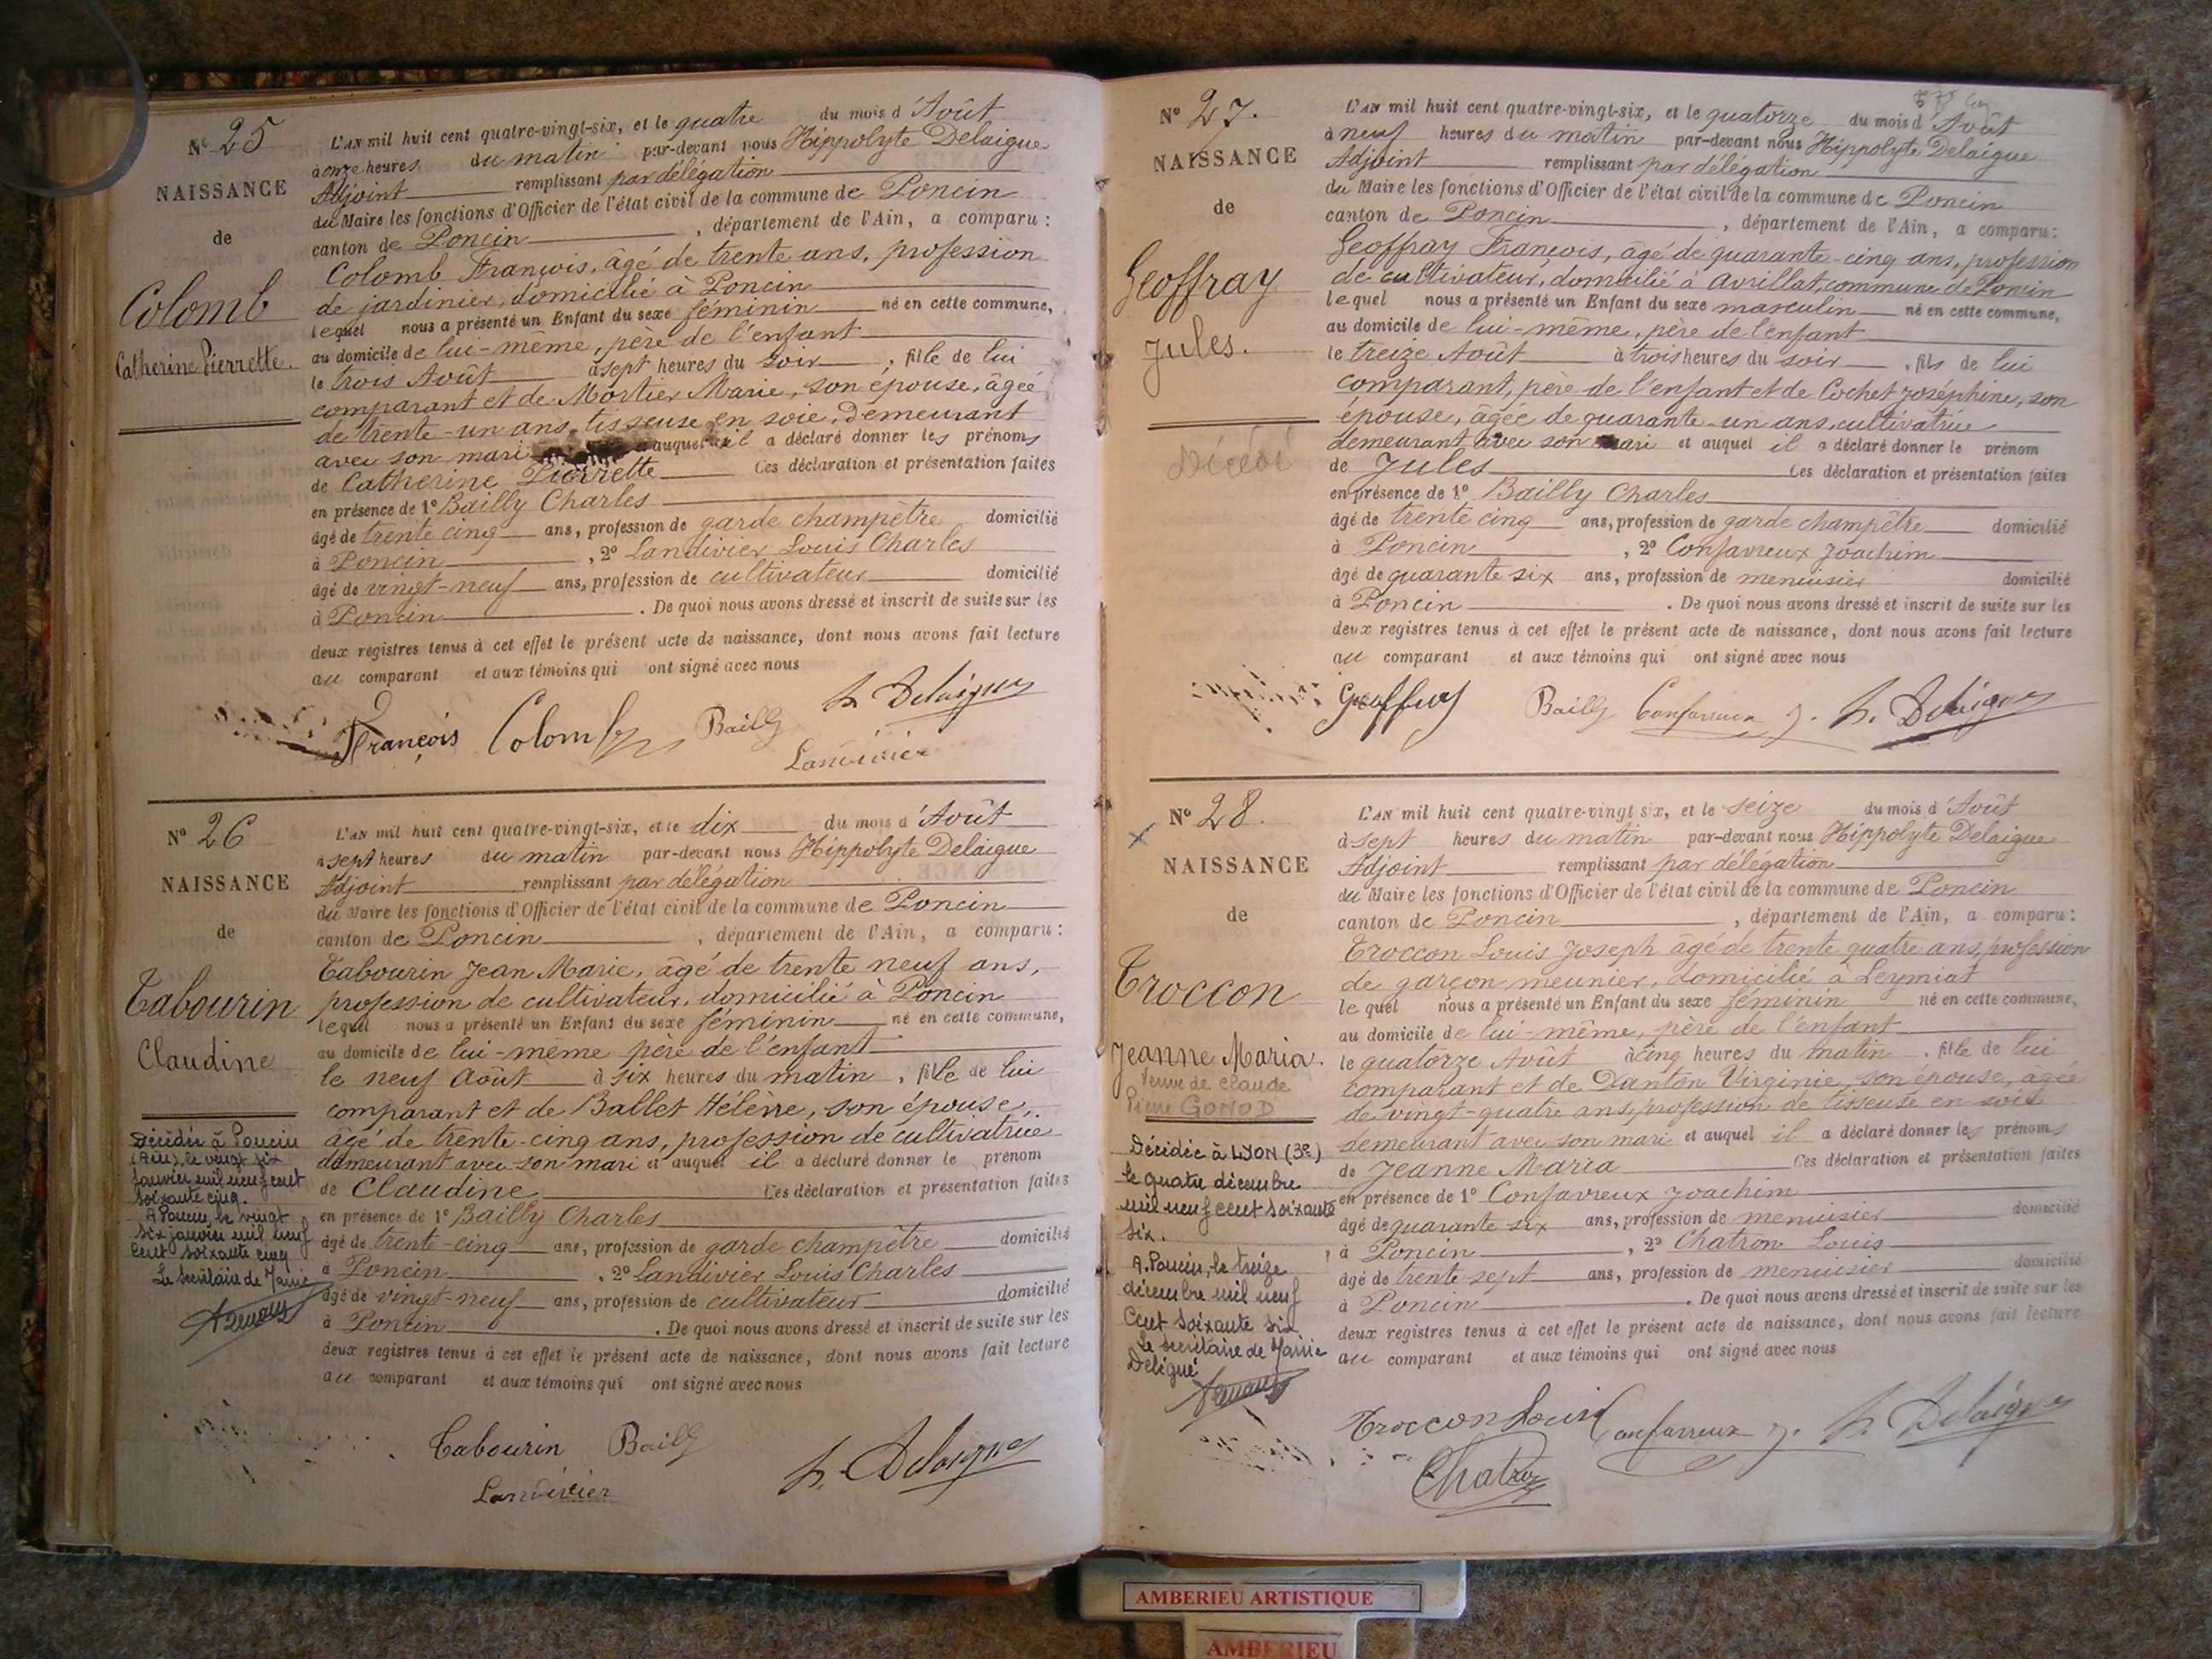 N° 25
NAISSANCE
de
Colomb
Catherine Pierrette.
L'AN mil huit cent quatre-vingt-six, et le quatre du mois d'Août
à onze heures du matin par-devant nous Hippolyte Delaigue
Adjoint remplissant par délégation
du Maire les fonctions d'Officier de l'état civil de la commune de Poncin
canton de Poncin, département de l'Ain, a comparu:
Colomb François, âgé de trente ans, profession
de jardinier, domicilié à Poncin
lequel nous a présenté un Enfant du sexe féminin né en cette commune,
au domicile de lui-même, père de l'enfant
le trois Août à sept heures du soir, fille de lui
comparant et de Mortier Marie, son épouse, âgée
de trente-un ans, tisseuse en soie, demeurant
avec son mari auquel il a déclaré donner les prénoms
de Catherine Pierrette Ces déclaration et présentation faites
en présence de 1° Bailly Charles
âgé de trente cinq ans, profession de garde champêtre domicilié
à Poncin, 2° Landivier Louis Charles
âgé de vingt-neuf ans, profession de cultivateur domicilié
à Poncin. De quoi nous avons dressé et inscrit de suite sur les
deux registres tenus à cet effet le présent acte de naissance, dont nous avons fait lecture
au comparant et aux témoins qui ont signé avec nous
François Colomb Bailly h. Delaigue
Landivier
N° 26
NAISSANCE
de
Tabourin
Claudine
Décédée à Poncin
(Ain), le vingt six
janvier mil neuf cent
soixante cinq.
A Poncin, le vingt
six janvier mil neuf
cent soixante cinq
Le secrétaire de Mairie
L'AN mil huit cent quatre-vingt-six, et le dix du mois d'Août
à sept heures du matin par-devant nous Hippolyte Delaigue
Adjoint remplissant par délégation
du Maire les fonctions d'Officier de l'état civil de la commune de Poncin
canton de Poncin, département de l'Ain, a comparu:
Tabourin Jean Marie, âgé de trente neuf ans,
profession de cultivateur, domicilié à Poncin
lequel nous a présenté un Enfant du sexe féminin né en cette commune,
au domicile de lui-même père de l'enfant
le neuf Août à six heures du matin, fille de lui
comparant et de Ballet Hélène, son épouse,
âgé de trente-cinq ans, profession de cultivatrice
demeurant avec son mari et auquel il a déclaré donner le prénom
de Claudine Ces déclaration et présentation faites
en présence de 1° Bailly Charles
âgé de trente-cinq ans, profession de garde champêtre domicilié
à Poncin, 2° Landivier Louis Charles
âgé de vingt-neuf ans, profession de cultivateur domicilié
à Poncin. De quoi nous avons dressé et inscrit de suite sur les
deux registres tenus à cet effet le présent acte de naissance, dont nous avons fait lecture
au comparant et aux témoins qui ont signé avec nous
Tabourin Bailly h. Delaigue
Landivier
N° 27.
NAISSANCE
de
Geoffray
Jules.
Décédé
L'AN mil huit cent quatre-vingt-six, et le quatorze du mois d'Août
à neuf heures du matin par-devant nous Hippolyte Delaigue
Adjoint remplissant par délégation
du Maire les fonctions d'Officier de l'état civil de la commune de Poncin
canton de Poncin, département de l'Ain, a comparu:
Geoffray François, âgé de quarante-cinq ans, profession
de cultivateur, domicilié à Avrillat, commune de Poncin
lequel nous a présenté un Enfant du sexe masculin né en cette commune,
au domicile de lui-même, père de l'enfant
le treize Août à trois heures du soir, fils de lui
comparant, père de l'enfant et de Cochet Joséphine, son
épouse, âgée de quarante-un ans, cultivatrice
demeurant avec son mari et auquel il a déclaré donner le prénom
de Jules Ces déclaration et présentation faites
en présence de 1° Bailly Charles
âgé de trente cinq ans, profession de garde champêtre domicilié
à Poncin, 2° Confavreux Joachim
âgé de quarante six ans, profession de menuisier domicilié
à Poncin. De quoi nous avons dressé et inscrit de suite sur les
deux registres tenus à cet effet le présent acte de naissance, dont nous avons fait lecture
au comparant et aux témoins qui ont signé avec nous
Geoffray Bailly Confavreux J. h. Delaigue
N° 28.
NAISSANCE
de
Troccon
Jeanne Maria.
Veuve de Claude
Pierre GONOD
Décédée à LYON (3e)
le quatre décembre
mil neuf cent soixante
six.
A Poncin, le treize
décembre mil neuf
cent soixante six
Le secrétaire de Mairie
Délégué
L'AN mil huit cent quatre-vingt six, et le seize du mois d'Août
à sept heures du matin par-devant nous Hippolyte Delaigue
Adjoint remplissant par délégation
du Maire les fonctions d'Officier de l'état civil de la commune de Poncin
canton de Poncin, département de l'Ain, a comparu:
Troccon Louis Joseph âgé de trente quatre ans, profession
de garçon meunier, domicilié à Leymiat
lequel nous a présenté un Enfant du sexe féminin né en cette commune,
au domicile de lui-même, père de l'enfant
le quatorze Août à cinq heures du matin, fille de lui
comparant et de Danton Virginie, son épouse, âgée
de vingt-quatre ans, profession de tisseuse en soie
demeurant avec son mari et auquel il a déclaré donner les prénoms
de Jeanne Maria Ces déclaration et présentation faites
en présence de 1° Confavreux Joachim
âgé de quarante six ans, profession de menuisier domicilié
à Poncin, 2° Chatron Louis
âgé de trente sept ans, profession de menuisier domicilié
à Poncin. De quoi nous avons dressé et inscrit de suite sur les
deux registres tenus à cet effet le présent acte de naissance, dont nous avons fait lecture
au comparant et aux témoins qui ont signé avec nous
Troccon Louis Confavreux J. h. Delaigue
Chatron
AMBERIEU ARTISTIQUE
AMBERIEU